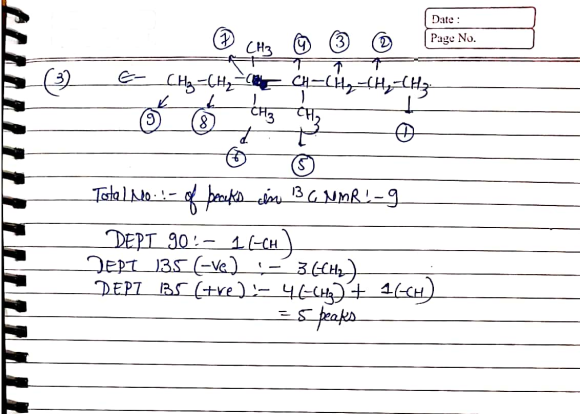 Date :
Page No.
⑦ CH3 ④ ③ ②
(3) E- CH3-CH2-C-CH-CH2-CH2-CH3
⑨ ⑧ CH3 CH3 ①
⑥ ⑤
Total No. :- of peaks in 13C NMR :- 9
DEPT 90 :- 1 (-CH)
DEPT 135 (-ve) :- 3 (-CH2)
DEPT 135 (+ve) :- 4 (-CH3) + 1 (-CH)
= 5 peaks